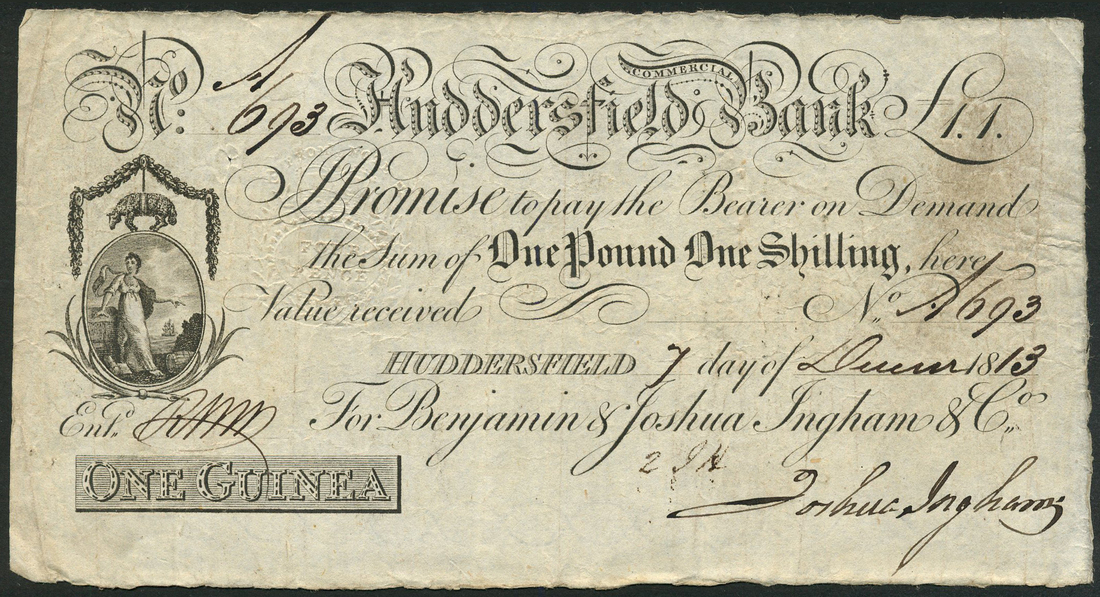 No: A/693 Huddersfield COMMERCIAL Bank £1.1.
I Promise to pay the Bearer on Demand
the Sum of One Pound One Shilling, here
Value received No. A/693
HUDDERSFIELD 7 day of 1813
Entd. For Benjamin & Joshua Ingham & Co.
ONE GUINEA
Joshua Ingham